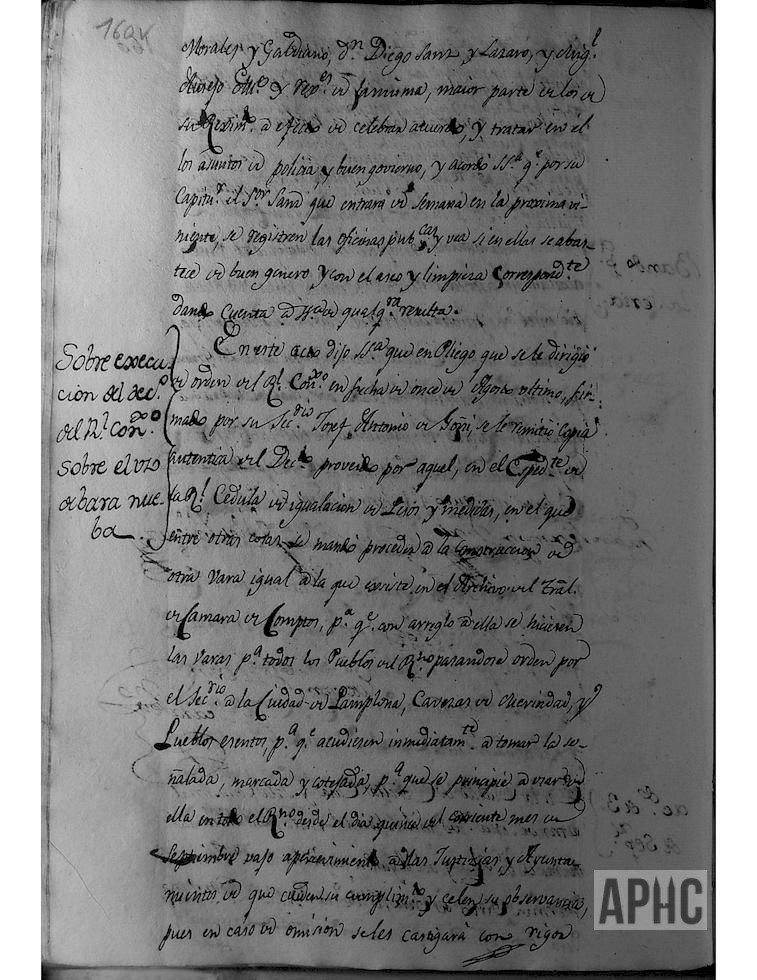 160v
Morales y Galdiano, Dn. Diego Sanz y Lazaro, y Mig.l
de fha. misma, maior parte de los de
su Reximt. a efecto de celebrar acuerdo, y tratar en el
los asuntos de policia, y buen govierno, y acordo SSa. qe. por su
Capitur. el Sor. Sanz que entrará de semana en la proxima vi-
niente, se registren las oficinas pubcas. y vea si en ellas se abas-
tece de buen genero y con el aseo y limpieza correspondte.
dando cuenta a SSa. de qualqra. resulta.
Sobre execu-
cion del dec.o
del Rl. Conso.
Sobre el uso
de bara nue-
ba
En este acto dijo SSa. que en Pliego que se le dirigió
de orden del Rl. Conso. en fecha de once de Agosto ultimo, fir-
mado por su Secrio. Josef Antonio de Goñi, se le remitio copia
autentica del Decto. proveido por aquel, en el Espedte. de
la Rl. Cedula de igualacion de Pesos y medidas, en el que
entre otras cosas se mandó proceder a la construccion de
otra vara igual a la que existe en el Archivo del Tral.
de Camara de Comptos, pa. qe. con arreglo a ella se hiciesen
las varas pa. todos los Pueblos del Rno. pasandose orden por
el Secrio. a la Ciudad de Pamplona, Cavezas de Merindad, y
Pueblos esentos, pa. qe. acudiesen inmediatamte. a tomar la se-
ñalada, marcada y cotejada, pa. que se principie a usar de
ella en todo el Rno. desde el dia quince del corriente mes de
Septiembre vajo apercivimiento a las Justicias y Ayunta-
mientos de que cuiden su cumplimto. y celen su observancia,
pues en caso de omision se les castigará con rigor
APHC